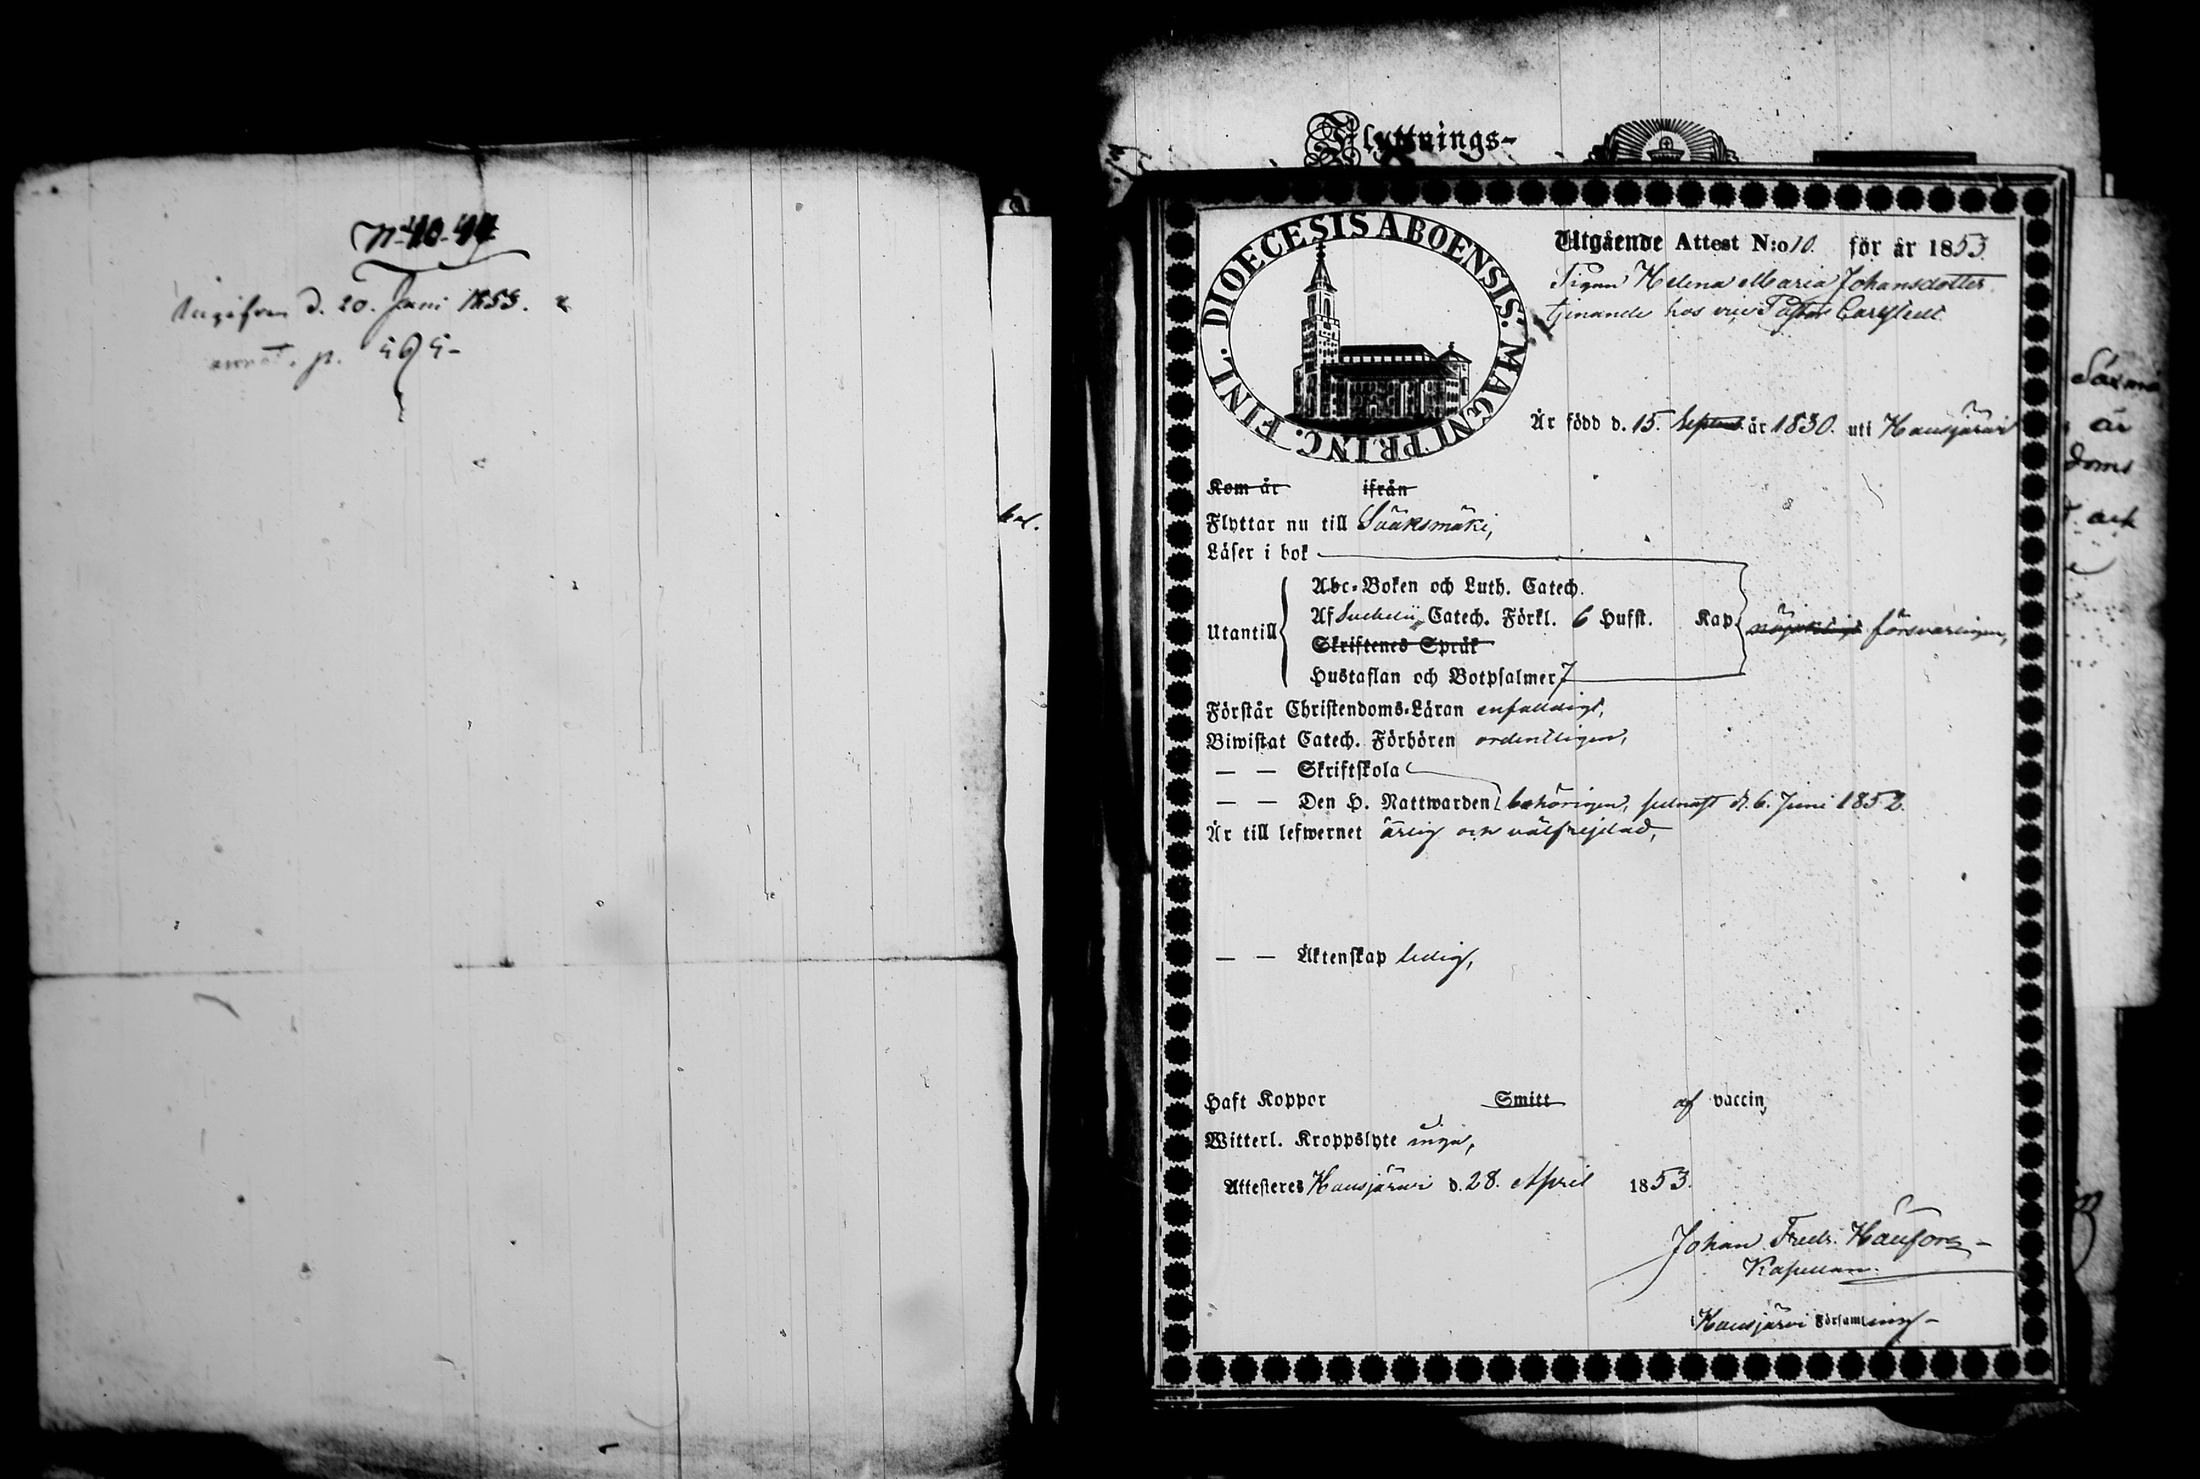 Ingifven d. 20. Juni 1853.
annot. p. 595-
bet.
Flyttnings-
DIOECESIS ABOENSIS. MAGNI PRINC. FINL.
Utgående Attest N:o 10. för år 1853.
Pigan Helena Maria Johansdotter
tjenande hos vice Pastor Carlstedt
Är född d. 15. Septemb. år 1830. uti Hausjärvi
Kom år ifrån
Flyttar nu till Sääksmäki,
Läser i bok
Abc-Boken och Luth. Catech.
Utantill Af Svebelii Catech. Förkl. 6 Hufst. Kap. nöjaktigt försvarligen,
Skriftenes Språk
Hustaflan och Botpsalmer 7
Förstår Christendoms-Läran enfaldigt,
Biwistat Catech. Förhören ordentligen,
— — Skriftskola
— — Den H. Nattwarden behörigen, senast d. 6. Juni 1852.
Är till lefwernet ärlig och välfrejdad,
— — Äktenskap ledig,
Haft Koppor Smitt af vaccin,
Witterl. Kroppslyte inga,
Attesteres Hausjärvi d. 28. April 1853.
Johan Fredr.
Kapellan.
Hausjärvi Församling-
är
doms
och